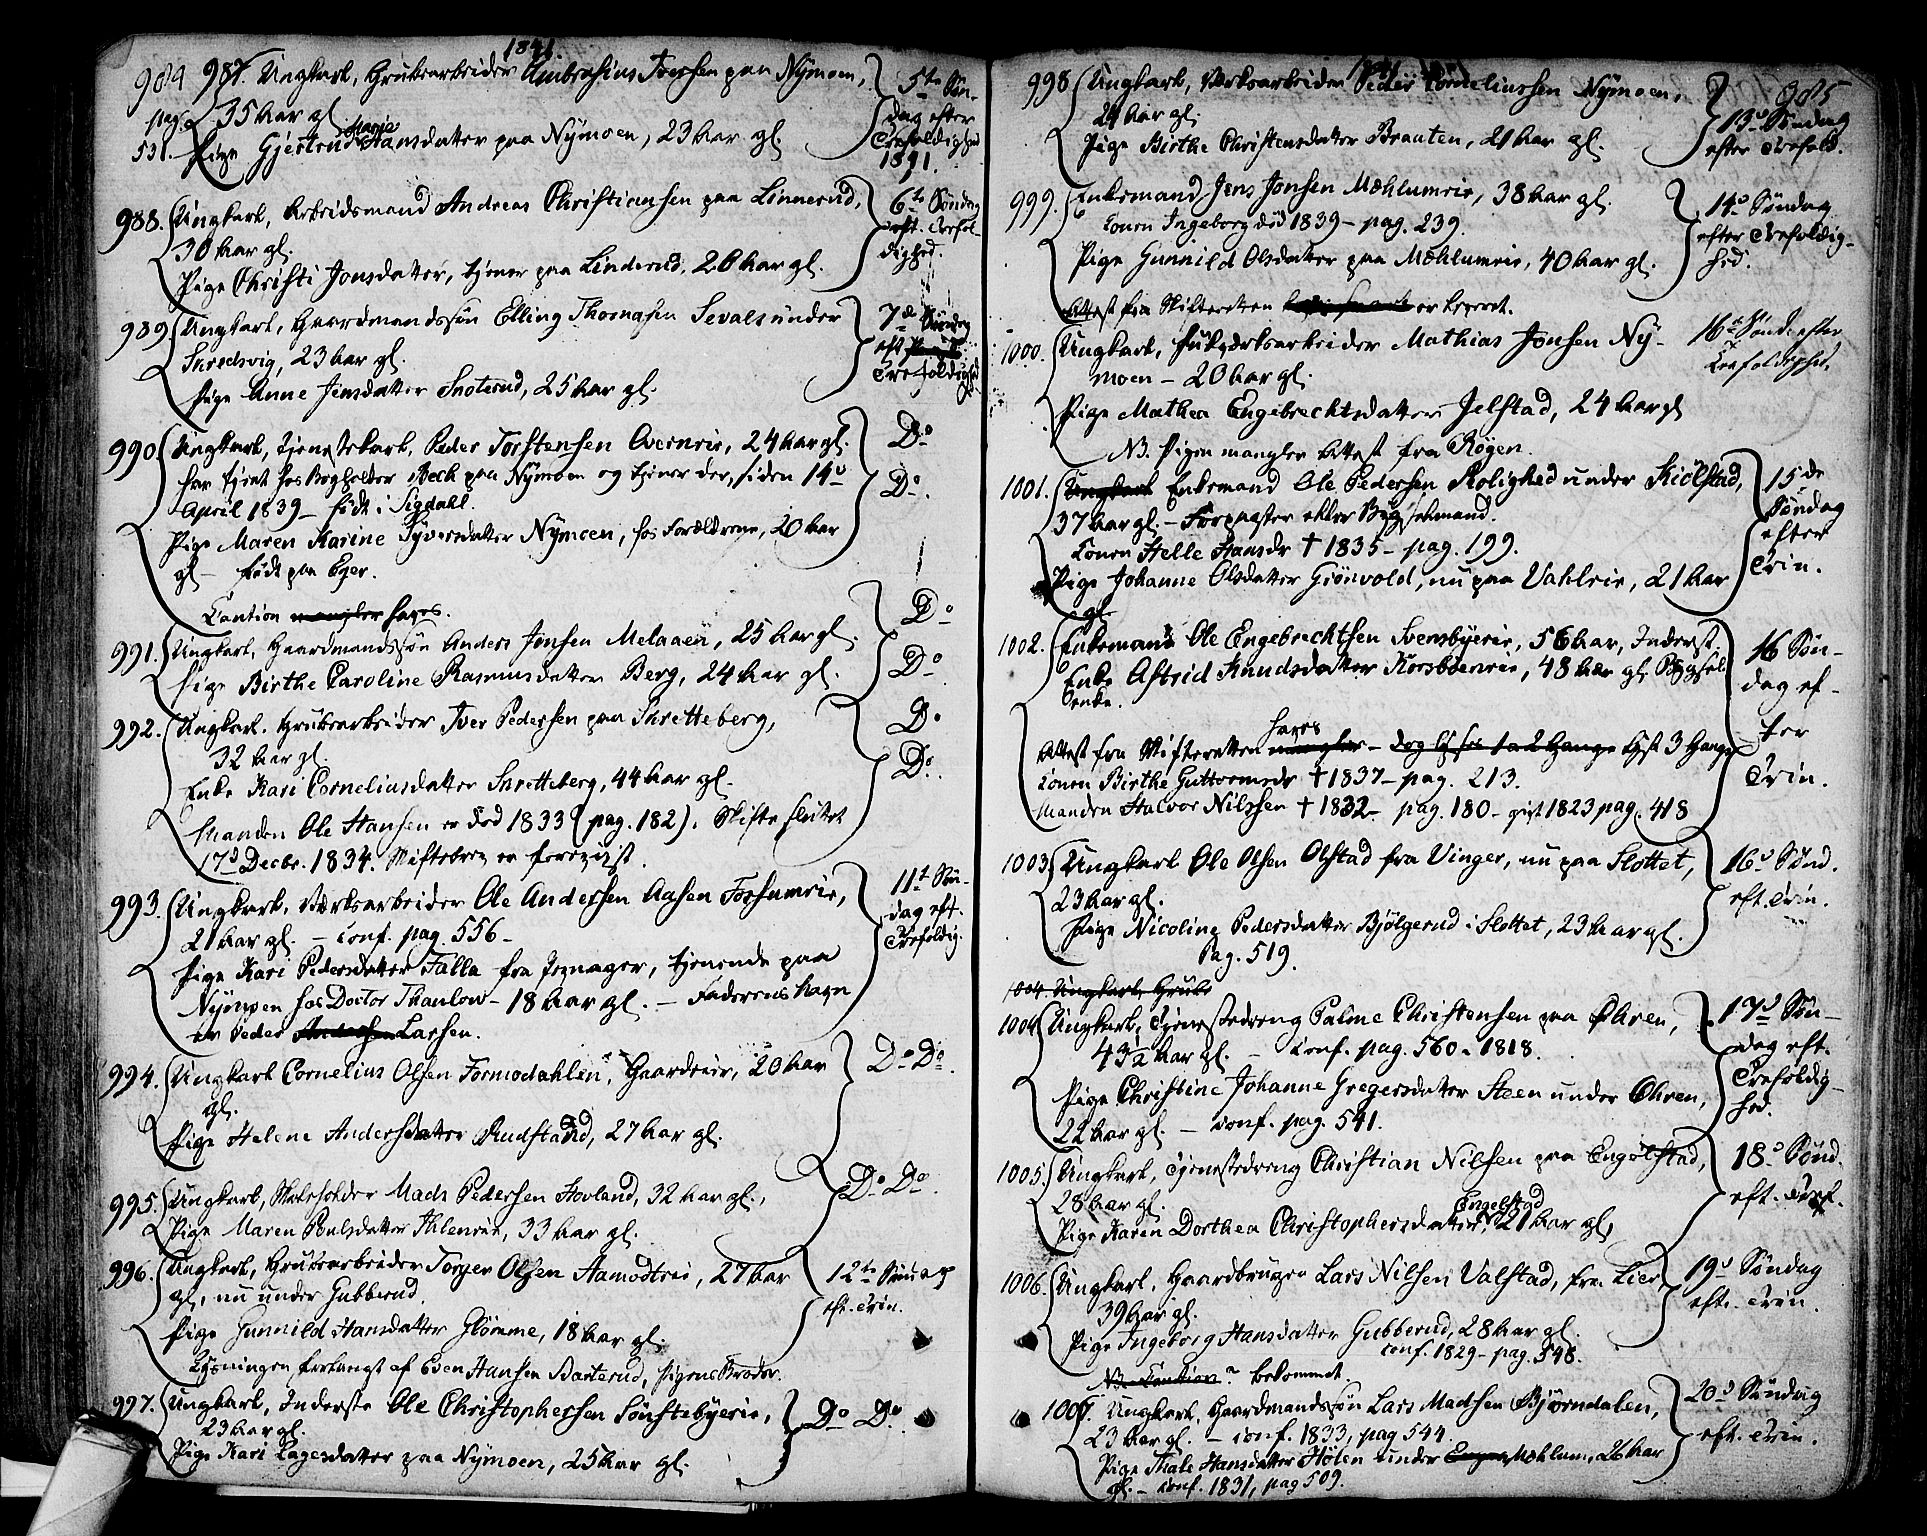 1841.
984
987. Ungkarl, Grubearbeider Ambrosius Iversen paa Nymoen,
pag. 531.
35 Aar gl.
Pige Gjertrud Marie Hansdatter paa Nymoen, 23 Aar gl.
5te Søn-
dag efter
Trefoldighed
1841.
988. Ungkarl, Arbeidsmand Andreas Christiansen paa Linnerud,
30 Aar gl.
Pige Christi Jonsdatter, tjener paa Linderud, 26 Aar gl.
6te Søndag
eft. Trefol-
dighed.
989. Ungkarl, Gaardmandssøn Elling Thomasen Sevals under
Skredsvig, 23 Aar gl.
Pige Anne Jensdatter Snoterud, 25 Aar gl.
7de Søndag
eft
Trefoldighed
990. Ungkarl, Tjenestekarl, Peder Torstensen Overnrie, 24 Aar gl.
har tjent hos Bogholder Bech paa Nymoen og tjener der, siden 14de
April 1839 – født i Sigdahl.
Pige Maren Karine Syversdatter Nymoen, hos Forældrene, 20 Aar
gl – født paa Eger.
Caution mangler haves.
Do
Do.
991. Ungkarl, Gaardmandssøn Anders Jonsen Melaaen, 25 Aar gl.
Pige Birthe Caroline Rasmusdatter Berg, 24 Aar gl.
Do
Do
992. Ungkarl, Grubearbeider Iver Pedersen paa Skretteberg,
32 Aar gl.
Enke Kari Corneliusdatter Skretteberg, 44 Aar gl.
Manden Ole Hansen er død 1833 (pag. 182). Skifte sluttet
17de Decbr. 1834. Skiftebrev er foreviist.
Do
Do.
993. Ungkarl, Værksarbeider Ole Andersen Aasen Fossumrie,
21 Aar gl. – conf. pag. 556 –
Pige Kari Pedersdatter Falla fra Jevnager, tjenende paa
Nymoen hos Doctor Thaulow – 18 Aar gl. – Faderens Navn
er Peder Andersen Larsen.
11te Søn-
dag eft.
Trefoldig.
994. Ungkarl Cornelius Olsen Formodahlen, Gaardrie, 20 Aar
gl.
Pige Helene Andersdatter Rudstad, 27 Aar gl.
Do Do.
995. Ungkarl, Skoleholder Mads Pedersen Hovland, 32 Aar gl.,
Pige Maren Poulsdatter Ihlenrie, 33 Aar gl.
Do Do.
996. Ungkarl, Grubearbeider Torger Olsen Aamodtrie, 27 Aar
gl, nu under Gubberud.
Pige Gunnild Hansdatter Glømme, 18 Aar gl.
Lysningen forlangt af Even Hansen Barterud, Pigens Broder.
12te Søndag
eft. Trin.
997. Ungkarl, Inderste Ole Christophersen Sønstebyerie,
23 Aar gl.
Pige Kari Lagesdatter paa Nymoen, 25 Aar gl.
Do Do.
1841
985
998. Ungkarl, Værksarbeider Peder Corneliussen Nymoen,
24 Aar gl.
Pige Birthe Christensdatter Brauten, 21 Aar gl.
13de Søndag
efter Trefold.
999. Enkemand, Jens Jonsen Mæhlumrie, 38 Aar gl.
Conen Ingeborg død 1839 – pag. 239.
Pige Gunnild Olsdatter paa Mæhlumrie, 40 Aar gl.
Attest fra Skifteretten er leveret.
14de Søndag
efter Trefoldig-
hed.
1000. Ungkarl, Huusværksarbeider Mathias Jonsen Ny-
moen – 20 Aar gl.
Pige Mathea Engebrechtsdatter Jelstad, 24 Aar gl
NB. Pigen mangler Attest fra Røgen.
16de Sønd. efter
Trefoldighed.
1001. Ungkarl Enkemand Ole Pedersen Rolighed under Kiølstad,
37 Aar gl. – Forpagter eller Bygselmand.
Conen Helle Hansdr † 1835 – pag. 199.
Pige Johanne Olsdatter Grønvold, nu paa Vahlrie, 21 Aar
gl.
15de
Søndag
efter
Trin.
1002. Enkemand Ole Engebrechtsen Svensbyerie, 56 Aar, Inderst
Enke Astrid Knudsdatter Korsboenrie, 48 Aar gl. Bygsel-
enke.
Attest fra Skifteretten mangler haves – dog lyses 1 a 2 Gange lyst 3 Gange
Conen Birthe Guttormsdr † 1837 – pag. 213.
Manden Halvor Nilssen † 1832 – pag. 180 – gift 1823 pag. 418
16 Søn-
dag ef-
ter
Trin.
1003. Ungkarl Ole Olsen Olstad fra Vinger, nu paa Slottet,
23 Aar gl.
Pige Nicoline Pedersdatter Bjølgerud i Slottet, 23 Aar gl.
Pag. 519.
16de Sønd.
eft. Trin.
1004. Ungkarl, Grube
1004. Ungkarl, Tjenestedreng Palme Christensen paa Ohren,
43½ Aar gl. – conf. pag. 560. 1818.
Pige Christine Johanne Gregersdatter Steen under Ohren,
22 Aar gl. – conf. pag. 541.
17de Søn-
dag eft.
Trefoldig-
hed.
1005. Ungkarl, Tjenestedreng Christian Nilsen paa Engolstad,
28 Aar gl.
Pige Karen Dorthea Christophersdatter, Engelstad 21 Aar gl,
18de Sønd.
eft. Tref.
1006. Ungkarl, Gaardbruger Lars Nilsen Valstad, fra Lier,
39 Aar gl.
Pige Ingeborg Hansdatter Gubberud, 28 Aar gl.
conf. 1829 – pag. 548.
NB. Caution? bekommet
19de Søndag
eft. Trin.
1007. Ungkarl, Gaardmandssøn Lars Madsen Bjørndalen,
23 Aar gl. – conf. 1833, pag 544.
Pige Thale Hansdatter Holen under Mæhlum, 26 Aar
gl. – conf. 1831, pag 509.
20de Søndag
eft. Trin.